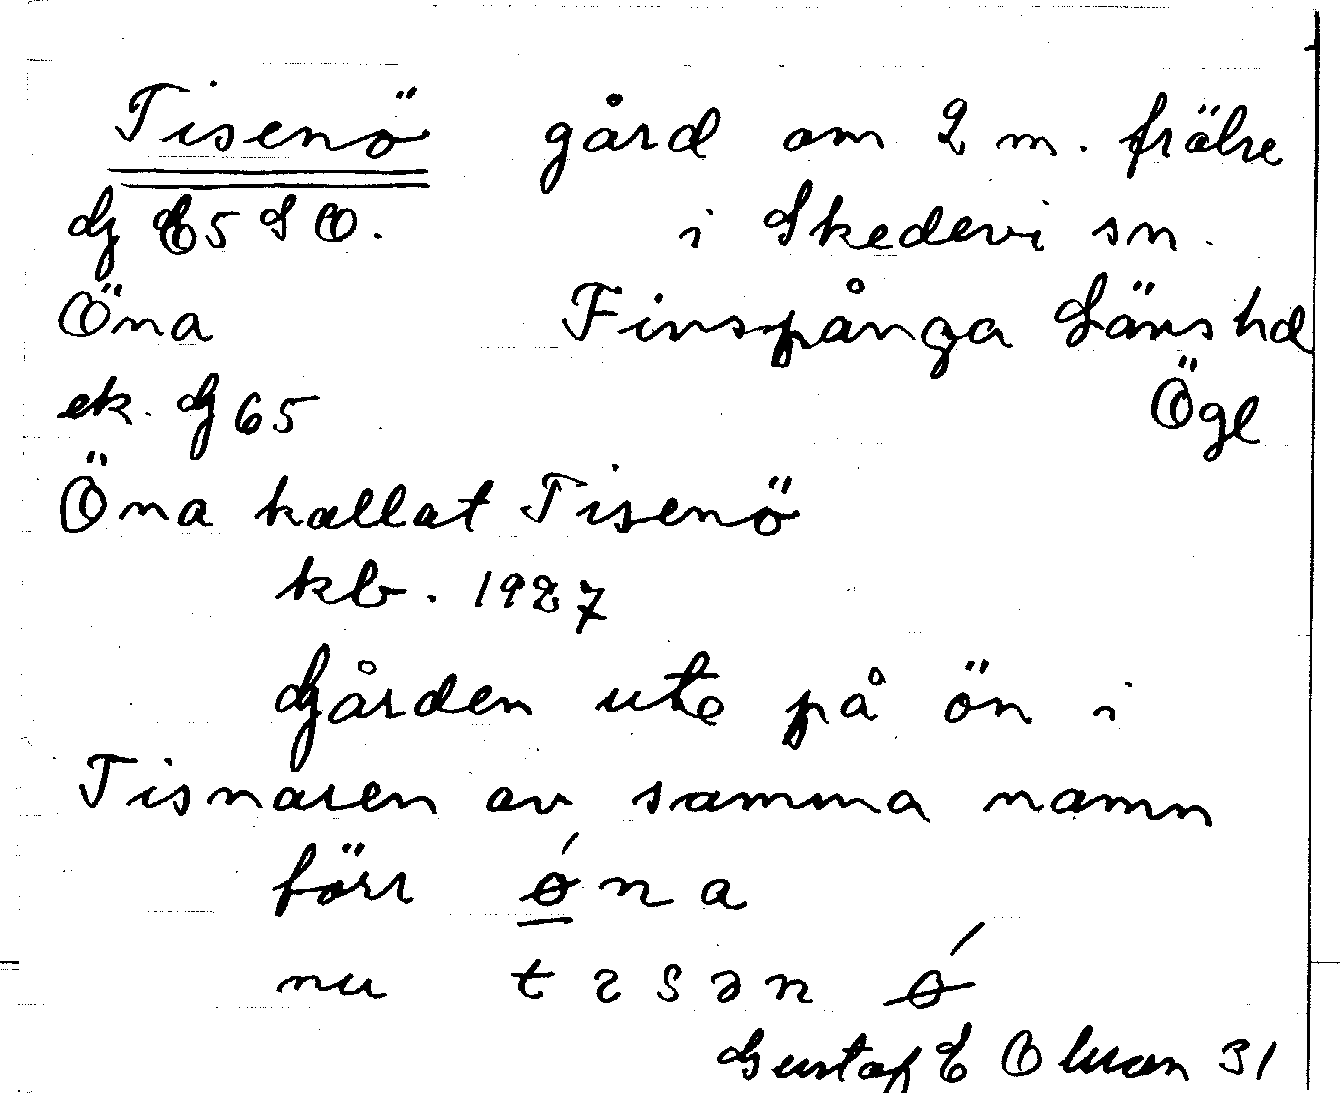 Tisenö gård om 2 m. frälse
G E5 SO. i Skedevi sn.
Öna Finspånga Läns hd
ek. G 65 Ögl
Öna kallat Tisenö
kb. 1927
Gården ute på ön i
Tisnaren av samma namn
förr ǿna
nu tɛsən ǿ
Gustaf E Olsson 31